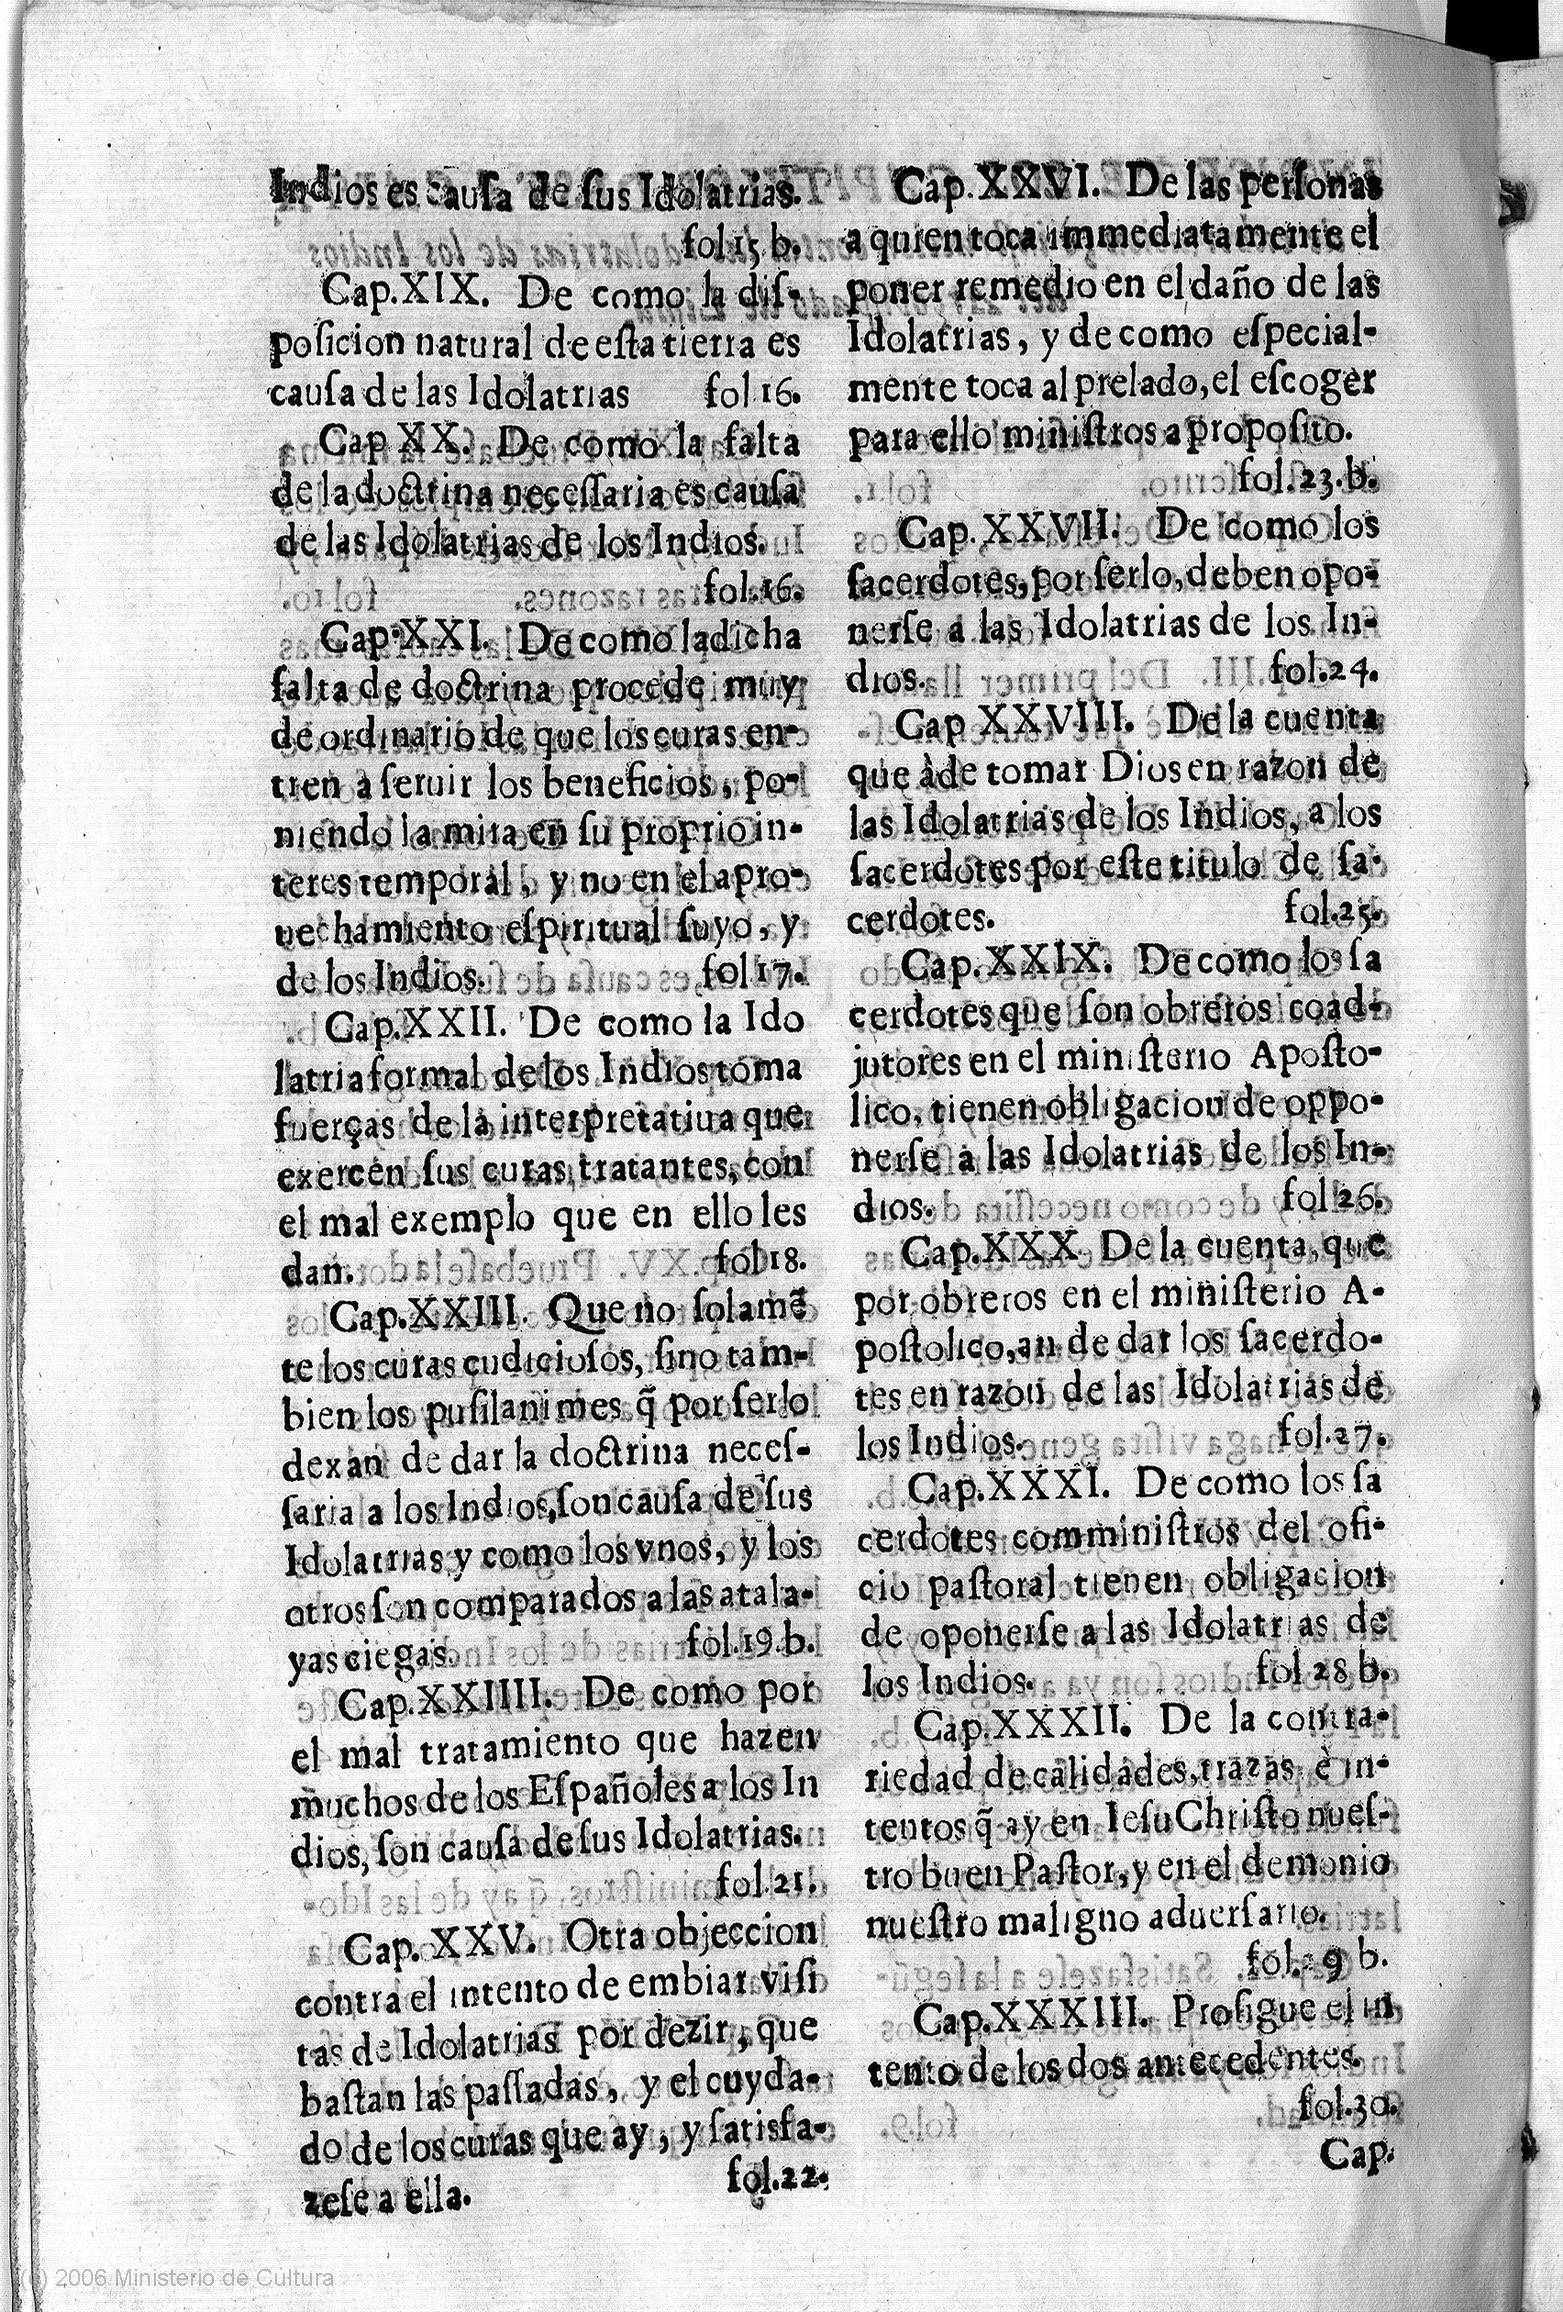 Indios es cauſa de ſus Idolatrias.
fol 15 b.
Cap.XIX. De como la diſ-
poſicion natural de eſta tierra es
cauſa de las Idolatrias fol 16.
Cap XX. De como la falta
de la doctrina neceſſaria es cauſa
de las Idolatrias de los Indios.
fol.16.
Cap.XXI. De como la dicha
falta de doctrina procede muy
de ordinario de que los curas en-
tren a ſeruir los beneficios, po-
niendo la mira en ſu proprio in-
teres temporal, y no en el apro-
uechamiento eſpiritual ſuyo, y
de los Indios. fol 17.
Cap.XXII. De como la Ido
latria formal de los Indios toma
fuerças de la interpretatiua que
exercen ſus curas tratantes, con
el mal exemplo que en ello les
dan. fol 18.
Cap.XXIII. Que no ſolamẽ
te los curas cudicioſos, ſino tam-
bien los puſilanimes q̃ por ſerlo
dexan de dar la doctrina neceſ-
ſaria a los Indios, ſon cauſa de ſus
Idolatrias y como los vnos, y los
otros ſon comparados a las atala-
yas ciegas. fol.19.b.
Cap.XXIIII. De como por
el mal tratamiento que hazen
muchos de los Eſpañoles a los In
dios, ſon cauſa de ſus Idolatrias.
fol.21.
Cap. XXV. Otra objeccion
contra el intento de embiar viſi
tas de Idolatrias por dezir, que
baſtan las paſſadas, y el cuyda-
do de los curas que ay, y ſatisfa-
zeſe a ella. fol.22.
Cap.XXVI. De las perſonas
a quien toca immediatamente el
poner remedio en el daño de las
Idolatrias, y de como eſpecial-
mente toca al prelado, el eſcoger
para ello miniſtros a propoſito.
fol.23.b.
Cap.XXVII. De como los
ſacerdotes, por ſerlo, deben opo-
nerſe a las Idolatrias de los In-
dios. fol.24.
Cap XXVIII. De la cuenta
que àde tomar Dios en razon de
las Idolatrias de los Indios, a los
ſacerdotes por eſte titulo de ſa-
cerdotes. fol.25.
Cap.XXIX. De como los ſa
cerdotes que ſon obreros coad-
jutores en el miniſterio Apoſto-
lico, tienen obligacion de oppo-
nerſe a las Idolatrias de los In-
dios. fol 26.
Cap.XXX De la cuenta, que
por obreros en el miniſterio A-
poſtolico, an de dar los ſacerdo-
tes en razon de las Idolatrias de
los Indios. fol.27.
Cap.XXXI. De como los ſa
cerdotes comminiſtros del ofi-
cio paſtoral tienen obligacion
de oponerſe a las Idolatrias de
los Indios. fol 28 b.
Cap.XXXII. De la contra-
riedad de calidades, trazas è in-
tentos q̃ ay en IeſuChriſto nueſ-
tro buen Paſtor, y en el demonio
nueſtro maligno aduerſario.
fol. 9 b.
Cap.XXXIII. Proſigue el in
tento de los dos antecedentes.
fol.30.
Cap.
(c) 2006 Ministerio de Cultura